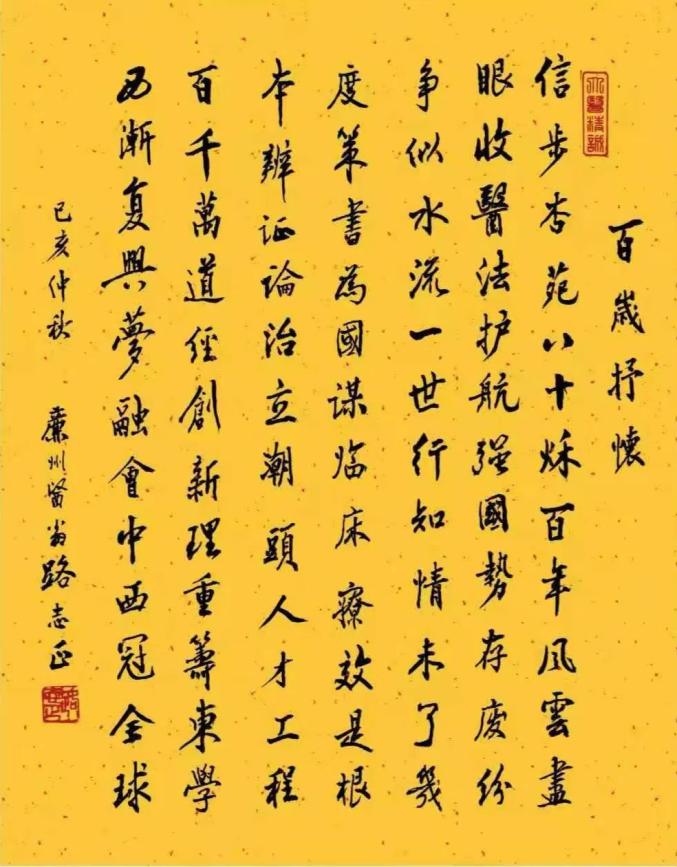 大醫精誠
百歲抒懷
信步杏苑八十秌百年風雲盡
眼收醫法护航强國勢存廢纷
争似水流一世行知情未了幾
度策書為國谋临床療效是根
本辨证論治立潮頭人才工程
百千萬道経創新理重籌東學
西漸复興夢融會中西冠全球
己亥仲秋 廉州醫翁路志正
路志正